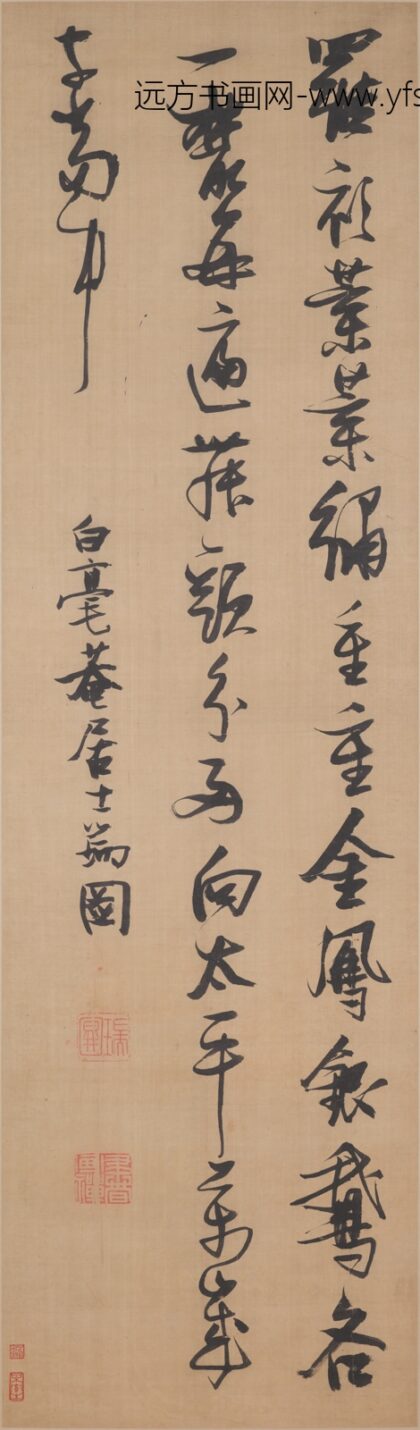 远方书画网-www.yfs
羅衫葉葉繡重重金鳳銀鵝各
一叢每遍舞頭分兩向太平萬歲
字當中
白毫菴居士瑞圖